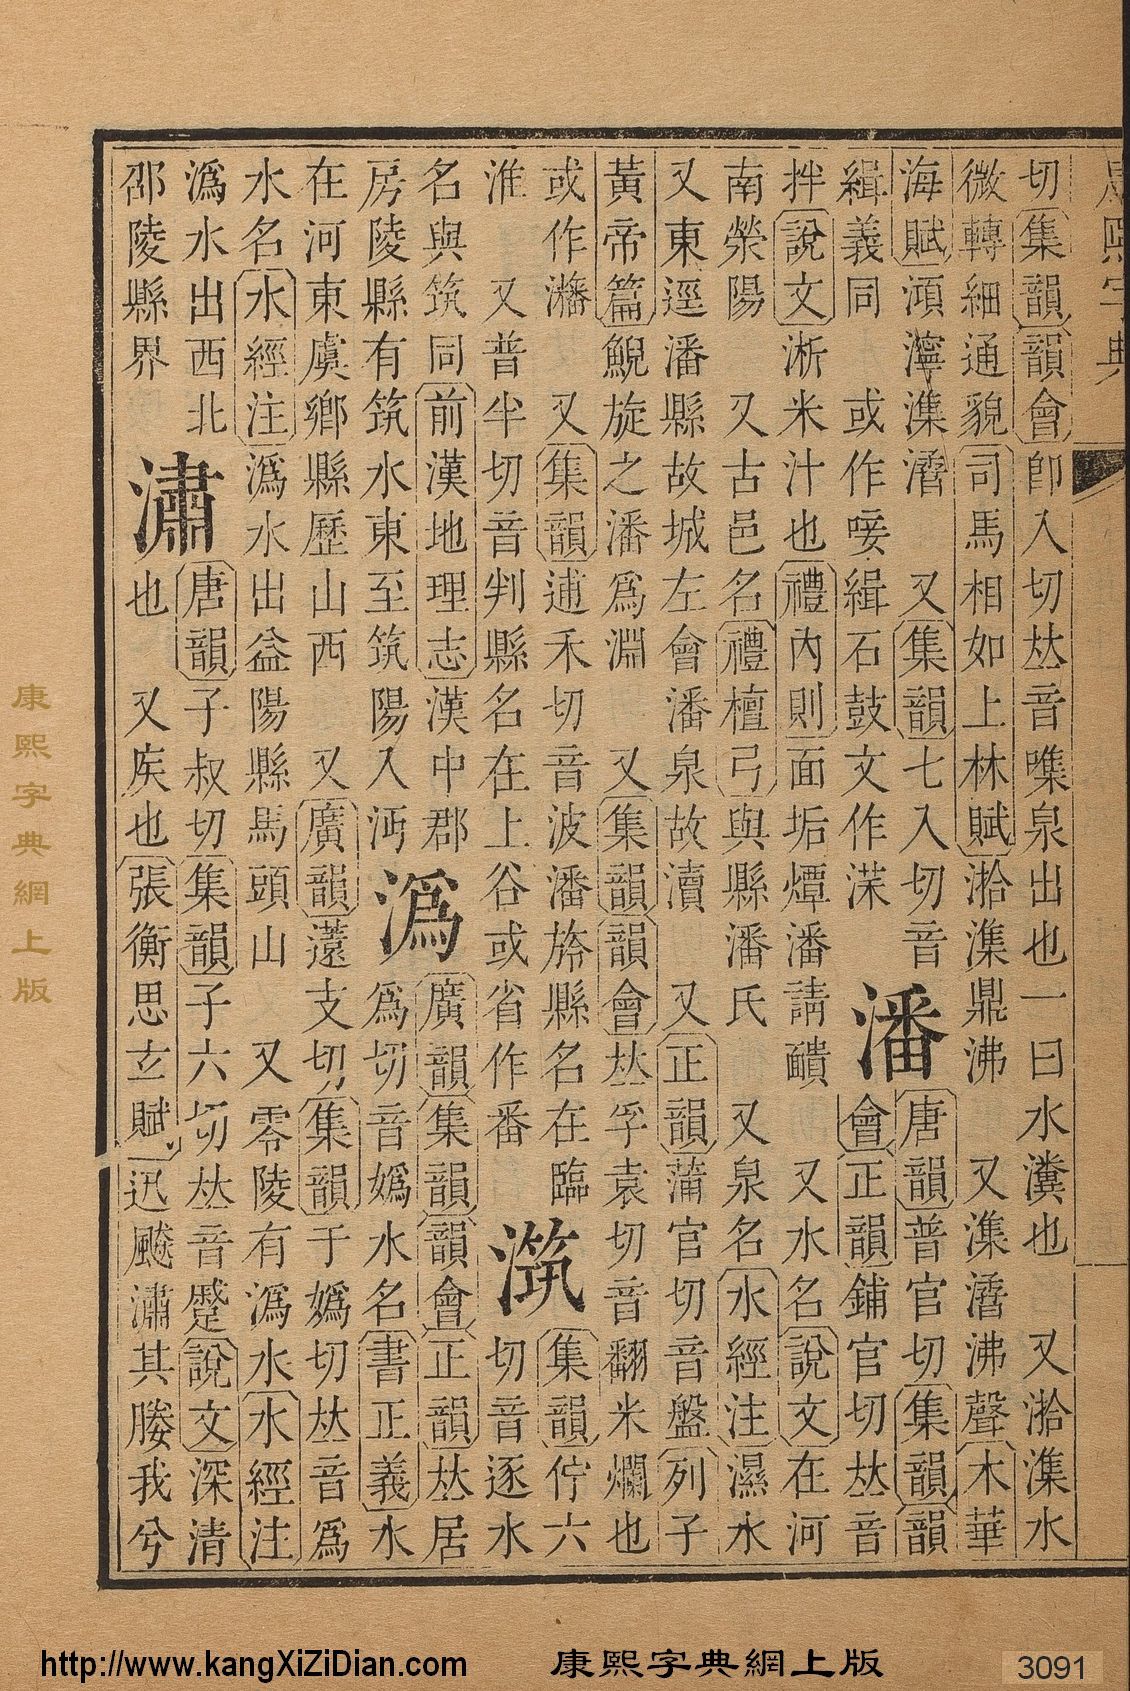 康熙字典
切集韻韻會卽入切𠀤音㗱泉出也一曰水瀵也 又湁潗水
微轉細通貌司馬相如上林賦湁潗鼎沸 又潗㴙沸聲木華
海賦澒濘潗㴙 又集韻七入切音
緝義同 或作唼緝石鼓文作渫
潘
唐韻普官切集韻韻
會正韻鋪官切𠀤音
拌說文淅米汁也禮內則面垢燂潘請靧 又水名說文在河
南滎陽 又古邑名禮檀弓與縣潘氏 又泉名水經注濕水
又東逕潘縣故城左會潘泉故瀆 又正韻蒲官切音盤列子
黃帝篇鯢旋之潘爲淵 又集韻韻會𠀤孚袁切音翻米爛也
或作 又集韻逋禾切音波潘旍縣名在臨
淮 又普半切音判縣名在上谷或省作番
集韻佇六
切音逐水
名與筑同前漢地理志漢中郡
房陵縣有筑水東至筑陽入沔
潙
廣韻集韻韻會正韻𠀤居
爲切音嬀水名書正義水
在河東虞鄉縣歷山西 又廣韻薳支切集韻于嬀切𠀤音爲
水名水經注潙水出益陽縣馬頭山 又零陵有潙水水經注
潙水出西北
邵陵縣界
潚
唐韻子叔切集韻子六切𠀤音蹙說文深清
也 又疾也張衡思玄賦迅飈潚其媵我兮
康熙字典網上版
http://www.kangXiZiDian.com 康熙字典網上版 3091